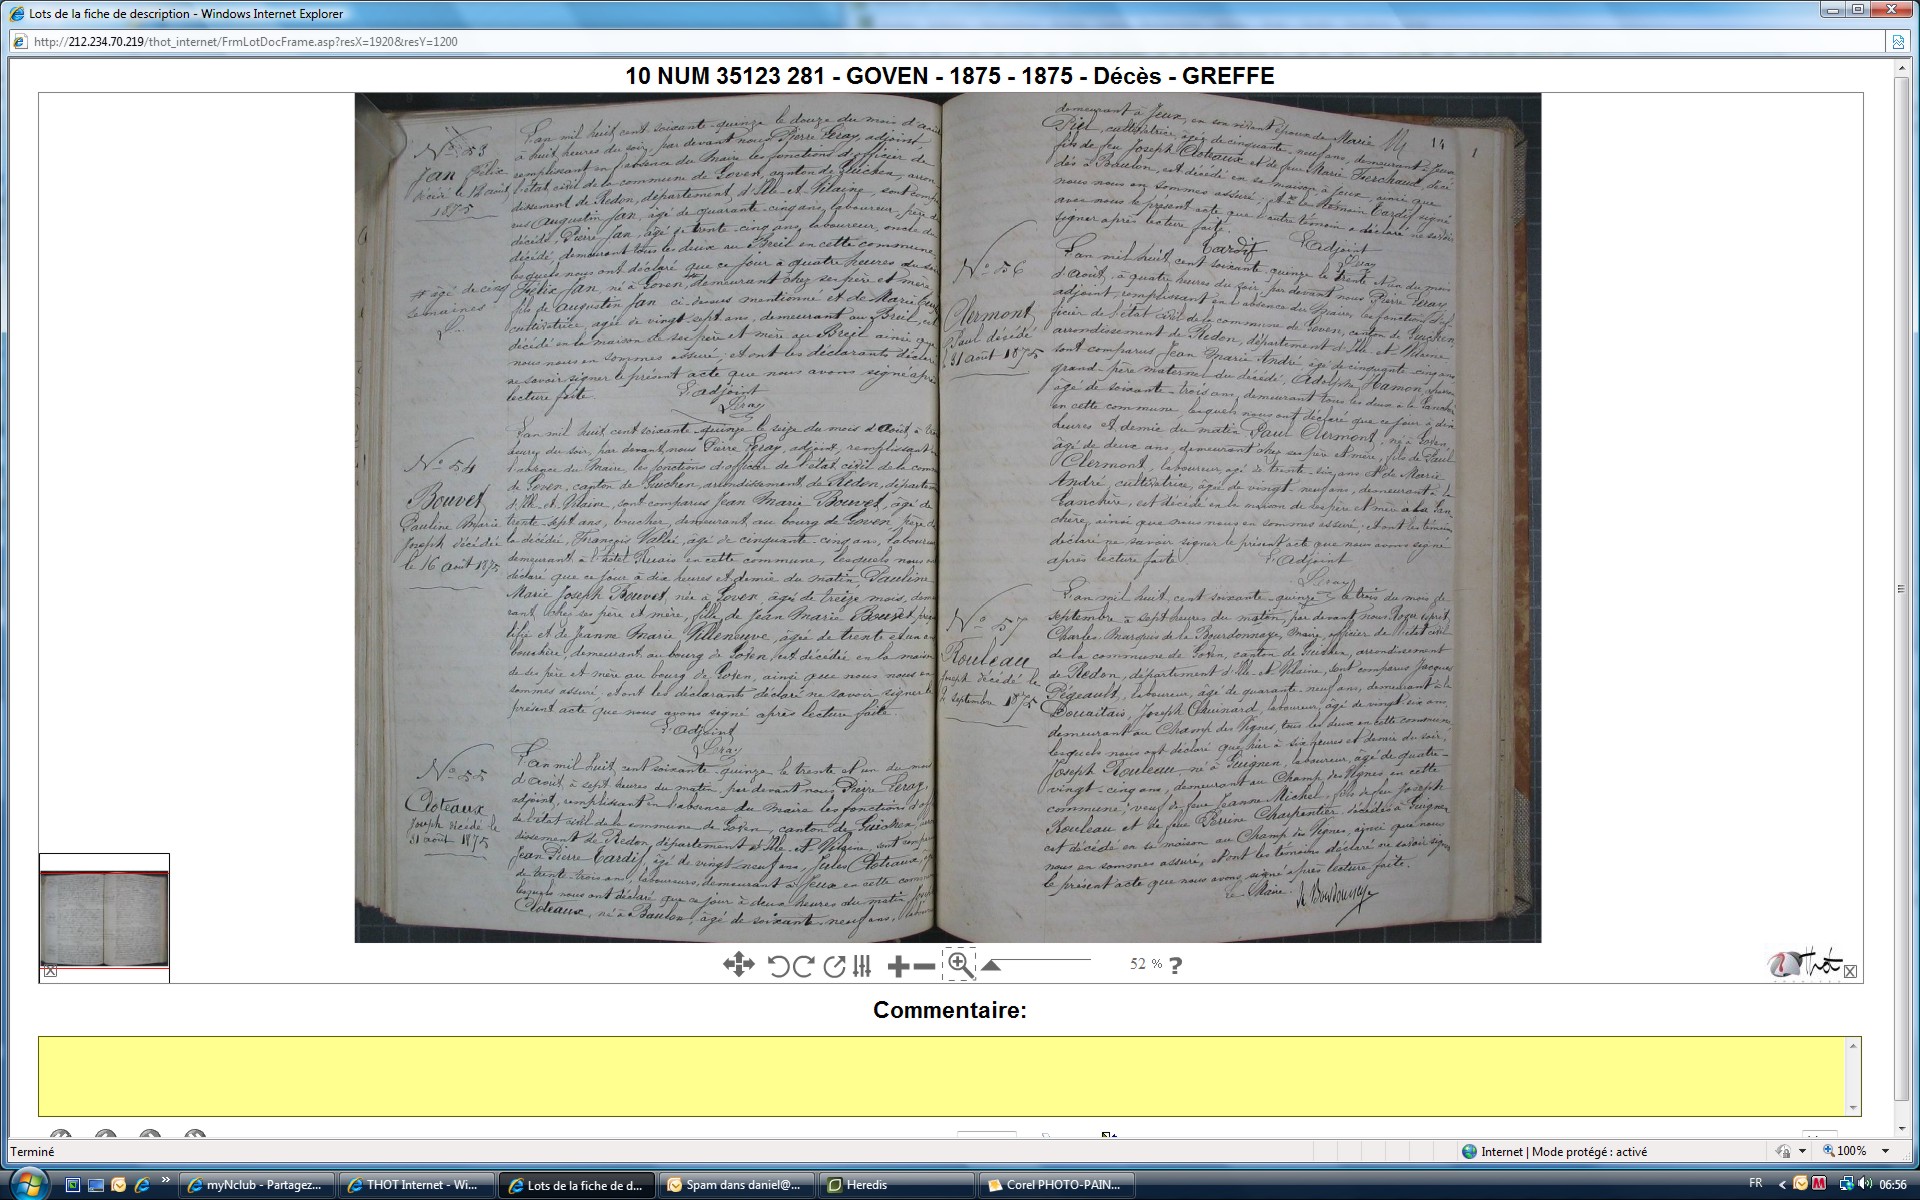 Lots de la fiche de description - Windows Internet Explorer
http://212.234.70.219/thot_internet/FrmLotDocFrame.asp?resX=1920&resY=1200
10 NUM 35123 281 - GOVEN - 1875 - 1875 - Décès - GREFFE
N° 53
Jan Félix
décédé le 12 août
1875
# âgé de cinq
semaines
L'an mil huit cent soixante-quinze le douze du mois d'août
à huit heures du soir, par devant nous Pierre Leray, adjoint
remplissant en l'absence du Maire les fonctions d'officier de
l'état civil de la commune de Goven, canton de Guichen, arron-
dissement de Redon, département d'Ille-et-Vilaine, sont compa-
rus Augustin Jan, âgé de quarante-cinq ans, laboureur, père du
décédé, Pierre Jan, âgé de trente-cinq ans, laboureur, oncle du
décédé, demeurant tous les deux au Breil en cette commune
lesquels nous ont déclaré que ce jour à quatre heures du soir
Félix Jan, né à Goven, # demeurant chez ses père et mère
fils de Augustin Jan ci-dessus mentionné et de Marie
cultivatrice, âgée de vingt-sept ans, demeurant au Breil, est
décédé en la maison de ses père et mère au Breil ainsi que
nous nous en sommes assuré; et ont les déclarants déclaré
ne savoir signer le présent acte que nous avons signé après
lecture faite.
L'adjoint
Leray
N° 54
Bouvet
Pauline Marie
Joseph décédée
le 16 août 1875
L'an mil huit cent soixante-quinze le seize du mois d'août, à
heures du soir, par devant nous Pierre Leray, adjoint, remplissant en
l'absence du Maire, les fonctions d'officier de l'état civil de la com
de Goven, canton de Guichen, arrondissement de Redon, départem
d'Ille-et-Vilaine, sont comparus Jean Marie Bouvet, âgé de
trente-sept ans, boucher, demeurant au bourg de Goven, père de
la décédée, François Vallée, âgé de cinquante-cinq ans, laboureur
demeurant à l'hôtel en cette commune, lesquels nous ont
déclaré que ce jour à dix heures et demie du matin, Pauline
Marie Joseph Bouvet, née à Goven, âgée de treize mois, demeu
rant chez ses père et mère, fille de Jean Marie Bouvet
et de Jeanne Marie Villeneuve, âgée de trente et un ans
bouchère, demeurant au bourg de Goven, est décédée en la maison
de ses père et mère au bourg de Goven, ainsi que nous nous en
sommes assuré; et ont les déclarants déclaré ne savoir signer le
présent acte que nous avons signé après lecture faite.
L'adjoint
Leray
N° 55
Cloteaux
Joseph décédé le
31 août 1875
L'an mil huit cent soixante-quinze le trente et un du mois
d'août, à sept heures du matin, par devant nous Pierre Leray,
adjoint, remplissant en l'absence du Maire les fonctions d'off
de l'état civil de la commune de Goven, canton de Guichen, arron
dissement de Redon, département d'Ille-et-Vilaine, sont comparus
Jean Pierre Tardif, âgé de vingt-neuf ans, Jules Cloteaux,
de trente-trois ans, laboureurs, demeurant à Jeux en cette commune
lesquels nous ont déclaré que ce jour à deux heures du matin Joseph
Cloteaux, né à Baulon, âgé de soixante-neuf ans,
14
1
demeurant à Jeux, en son vivant époux de Marie
Piel, cultivatrice, âgée de cinquante-neuf ans, demeurant à Jeux
fils de feu Joseph Cloteaux et de feue Marie Ferchaud, décé
dés à Baulon, est décédé en sa maison à Jeux, ainsi que
nous nous en sommes assuré; et a le témoin Tardif signé
avec nous le présent acte que l'autre témoin a déclaré ne savoir
signer après lecture faite.
Tardif L'adjoint
Leray
N° 56
Clermont
Paul décédé
le 31 août 1875
L'an mil huit cent soixante-quinze le trente et un du mois
d'août, à quatre heures du soir, par devant nous Pierre Leray
adjoint, remplissant en l'absence du Maire, les fonctions d'of-
ficier de l'état civil de la commune de Goven, canton de Guichen,
arrondissement de Redon, département d'Ille-et-Vilaine,
sont comparus Jean Marie André, âgé de cinquante-cinq ans
grand-père maternel du décédé, Adolphe Hamon,
âgé de soixante-trois ans, demeurant tous les deux à la Lanchère
en cette commune lesquels nous ont déclaré que ce jour à dix
heures et demie du matin Paul Clermont, né à Goven,
âgé de deux ans, demeurant chez ses père et mère, fils de Paul
Clermont, laboureur, âgé de trente-six ans et de Marie
André, cultivatrice, âgée de vingt-neuf ans, demeurant à la
Lanchère, est décédé en la maison de ses père et mère à la Lan-
chère, ainsi que nous nous en sommes assuré; et ont les témoins
déclaré ne savoir signer le présent acte que nous avons signé
après lecture faite.
L'adjoint
Leray
N° 57
Rouleau
Joseph décédé le
2 septembre 1875
L'an mil huit cent soixante-quinze, le trois du mois de
septembre à sept heures du matin, par devant nous Roger Esprit
Charles Marquis de la Bourdonnaye, Maire, officier de l'état civil
de la commune de Goven, canton de Guichen, arrondissement
de Redon, département d'Ille-et-Vilaine, sont comparus Jacques
Pégeault, laboureur, âgé de quarante-neuf ans, demeurant à la
Douaitais, Joseph Guinard, laboureur, âgé de vingt-six ans,
demeurant au Champ des Vignes, tous les deux en cette commune
lesquels nous ont déclaré que hier à six heures et demie du soir,
Joseph Rouleau, né à Guignen, laboureur, âgé de quatre-
vingt-cinq ans, demeurant au Champ des Vignes en cette
commune, veuf de feue Jeanne Michel, fils de feu Joseph
Rouleau et de feue Perrine Charpentier décédés à Guignen
est décédé en sa maison au Champ des Vignes, ainsi que nous
nous en sommes assuré, et ont les témoins déclaré ne savoir signer
le présent acte que nous avons signé après lecture faite.
Le Maire.
52 % ?
Thot
Commentaire:
Terminé
Internet | Mode protégé : activé
100%
myNclub - Partagez...
THOT Internet - Wi...
Lots de la fiche de d...
Spam dans daniel@...
Heredis
Corel PHOTO-PAIN...
FR
06:56